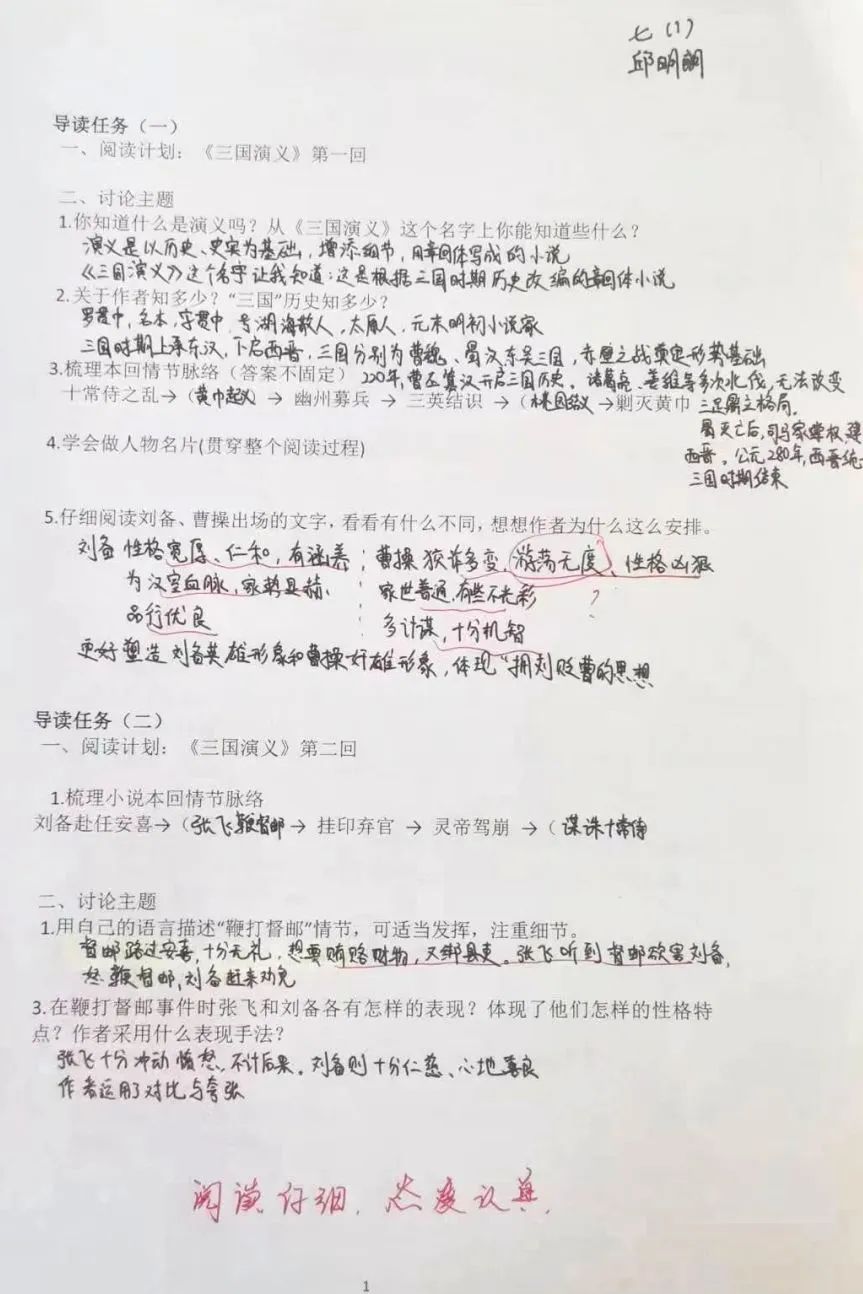 七(1)
邱明朗
导读任务（一）
一、阅读计划：《三国演义》第一回
二、讨论主题
1.你知道什么是演义吗？从《三国演义》这个名字上你能知道些什么？
演义是以历史、史实为基础，增添细节，用章回体写成的小说
《三国演义》这个名字让我知道：这是根据三国时期历史改编的章回体小说
2.关于作者知多少？“三国”历史知多少？
罗贯中，名本，字贯中，号湖海散人，太原人，元末明初小说家
三国时期上承东汉，下启西晋，三国分别为曹魏、蜀汉、东吴三国，赤壁之战奠定形势基础
3.梳理本回情节脉络（答案不固定）220年，曹丕篡汉开启三国历史。诸葛亮、姜维等多次北伐，无法改变
十常侍之乱→（黄巾起义→ 幽州募兵 → 三英结识 →（桃园结义→剿灭黄巾 三足鼎立格局。
蜀灭亡后，司马家掌权，建
4.学会做人物名片(贯穿整个阅读过程)
西晋。公元280年，西晋统一
三国时期结束
5.仔细阅读刘备、曹操出场的文字，看看有什么不同，想想作者为什么这么安排。
刘备 性格宽厚、仁和，有涵养；曹操 狡诈多变，游荡无度、性格凶狠
为汉室血脉，家势显赫. 家世普通，有些不光彩
?
品行优良 多计谋，十分机智
更好塑造刘备英雄形象和曹操奸雄形象，体现“拥刘贬曹的思想
导读任务（二）
一、阅读计划：《三国演义》第二回
1.梳理小说本回情节脉络
刘备赴任安喜→（张飞鞭督邮→ 挂印弃官 → 灵帝驾崩 →（ 谋诛十常侍
二、讨论主题
1.用自己的语言描述“鞭打督邮”情节，可适当发挥，注重细节。
督邮路过安喜，十分无礼，想要贿赂财物，又绑县吏。张飞听到督邮欲害刘备，
怒鞭督邮，刘备赶来劝免
3.在鞭打督邮事件时张飞和刘备各有怎样的表现？体现了他们怎样的性格特
点？作者采用什么表现手法？
张飞十分冲动愤怒，不计后果。刘备则十分仁慈、心地善良
作者运用了对比与夸张
阅读仔细，态度认真.
1